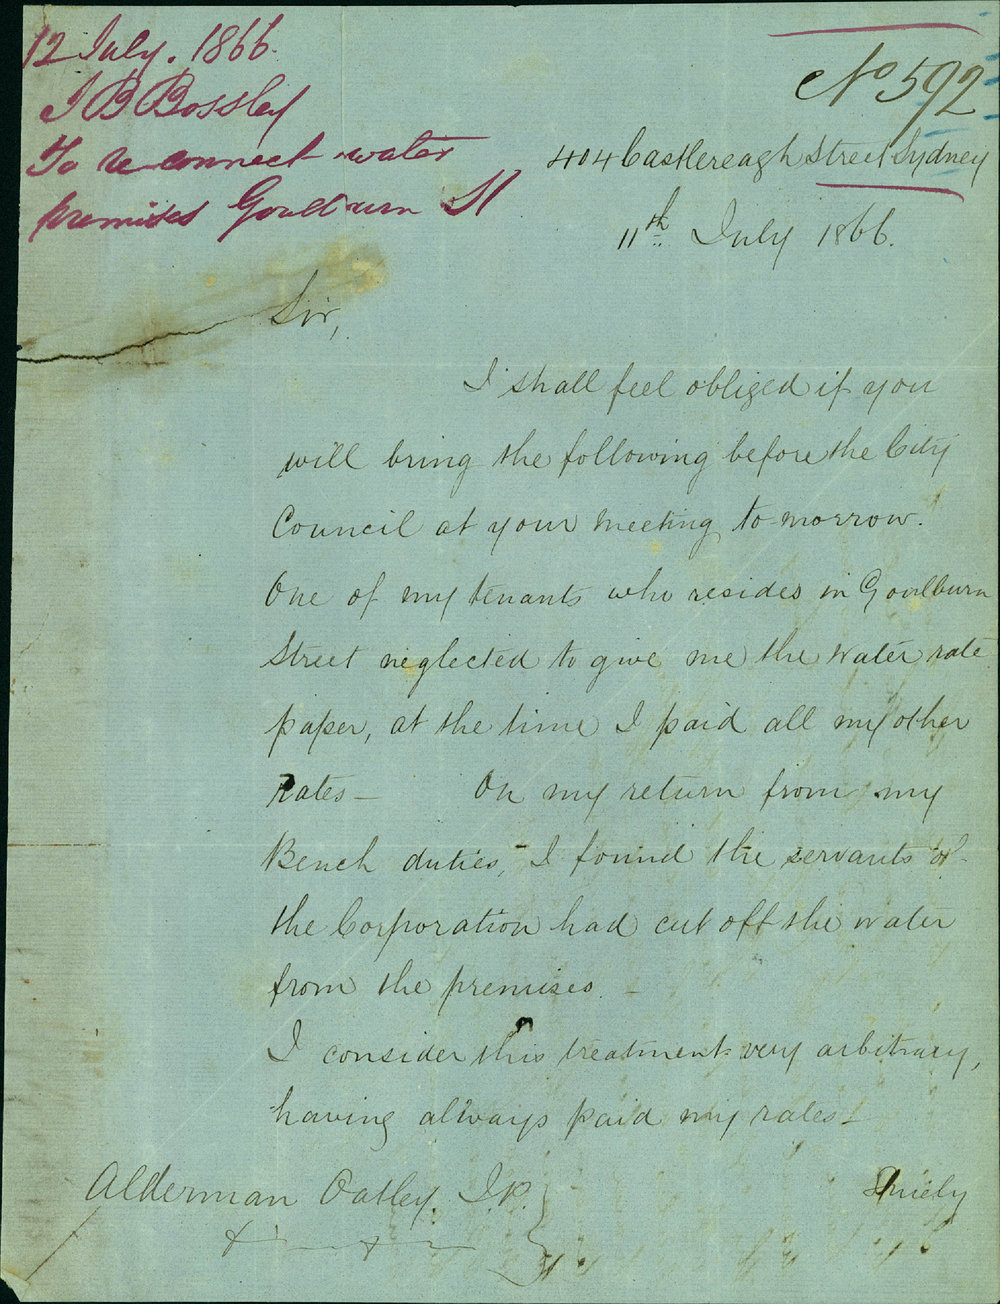 12 July. 1866.
J B Bossley
To reconnect water
premises Goulburn St
No 592
404 Castlereagh Street Sydney
11th July 1866.
Sir,
I shall feel obliged if you
will bring the following before the City
Council at your meeting to-morrow.
One of my tenants who resides in Goulburn
Street neglected to give me the water rate
paper, at the time I paid all my other
rates —
On my return from my
Bench duties, I found the servants of
the Corporation had cut off the water
from the premises. —
I consider this treatment very arbitrary,
having always paid my rates —
Alderman Oatley. J.P.